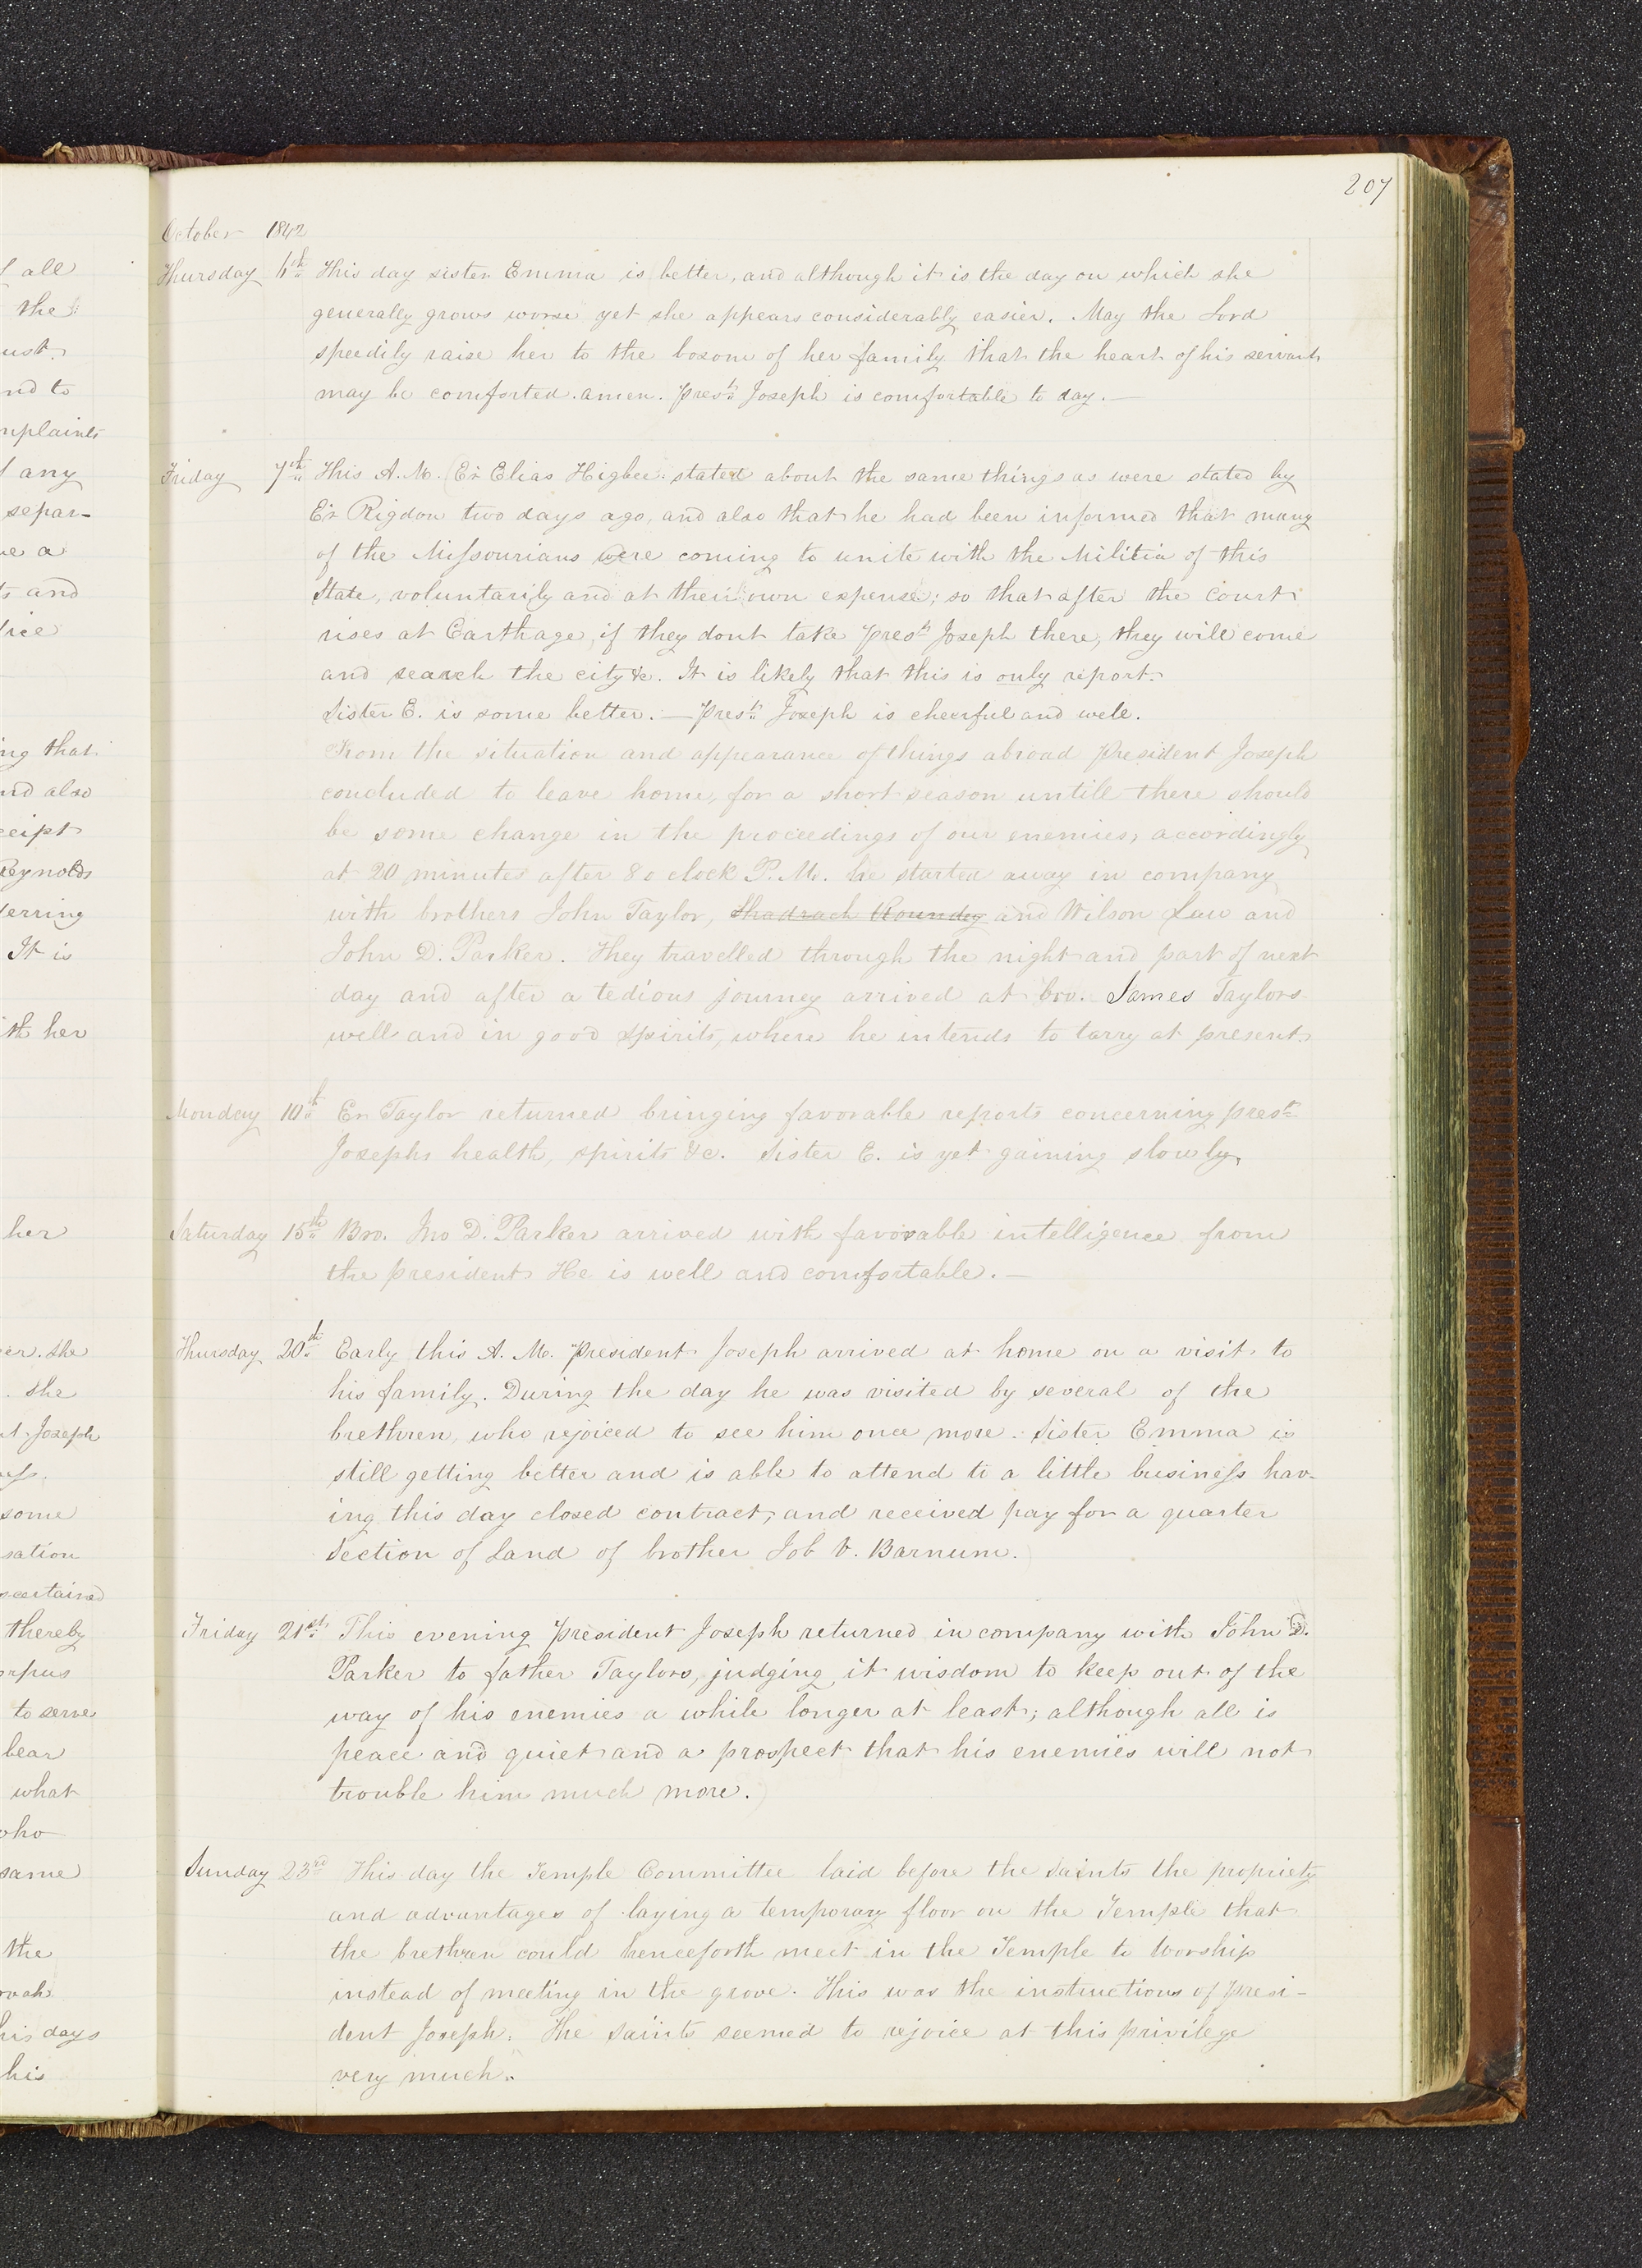 207
October 1842
Thursday 6th This day sister Emma is better, and although it is the day on which she
generally grows worse yet she appears considerably easier. May the Lord
speedily raise her to the bosom of her family that the heart of his servant
may be comforted. amen. Prest. Joseph is comfortable to day. —
Friday 7th This A.M. Er Elias Higbee stated about the same things as were stated by
Er Rigdon two days ago, and also that he had been informed that many
of the Missourians were coming to unite with the Militia of this
State, voluntarily and at their own expense; so that after the court
rises at Carthage, if they dont take prest. Joseph there, they will come
and search the city &c. It is likely that this is only report.
Sister E. is some better. — Prest. Joseph is cheerful and well.
From the situation and appearance of things abroad President Joseph
concluded to leave home, for a short season untill there should
be some change in the proceedings of our enemies, accordingly
at 20 minutes after 8 o clock P.M. he started away in company
with brothers John Taylor, Shadrach Roundy and Wilson Law and
John D. Parker. They travelled through the night and part of next
day and after a tedious journey arrived at bro. James Taylors
well and in good spirits, where he intends to tarry at present.
Monday 10th Er Taylor returned bringing favorable reports concerning prest.
Josephs health, spirits &c. Sister E. is yet gaining slowly.
Saturday 15th Bro. Jno D. Parker arrived with favorable intelligence from
the president He is well and comfortable. —
Thursday 20th Early this A. M. President Joseph arrived at home on a visit to
his family. During the day he was visited by several of the
brethren, who rejoiced to see him once more. Sister Emma is
still getting better and is able to attend to a little business hav-
ing this day closed contract, and received pay for a quarter
Section of Land of brother Job V. Barnum.
Friday 21st This evening President Joseph returned in company with John D.
Parker to father Taylors, judging it wisdom to keep out of the
way of his enemies a while longer at least; although all is
peace and quiet and a prospect that his enemies will not
trouble him much more.
Sunday 23rd This day the Temple Committee laid before the saints the propriety
and advantages of laying a temporary floor on the Temple that
the brethren could henceforth meet in the Temple to worship
instead of meeting in the grove. This was the instructions of Presi-
dent Joseph. The Saints seemed to rejoice at this privilege
very much.
all
the
ust.
nd to
mplaints
any
separ-
ve a
and
ing that
nd also
ceipt
Reynolds
ferring
It is
ith her
her
er. she
she
Joseph
some
sation
scertained
thereby
orpus
to serve
bear
what
who
same
the
his days
his